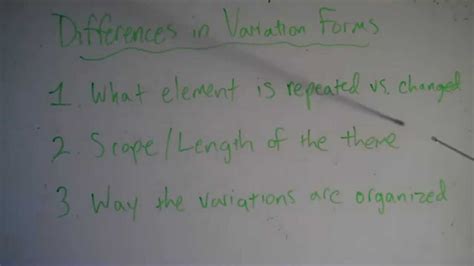 Differences in Variation Forms
1. What element is repeated vs. changed
2. Scope/Length of the theme
3. Way the variations are organized